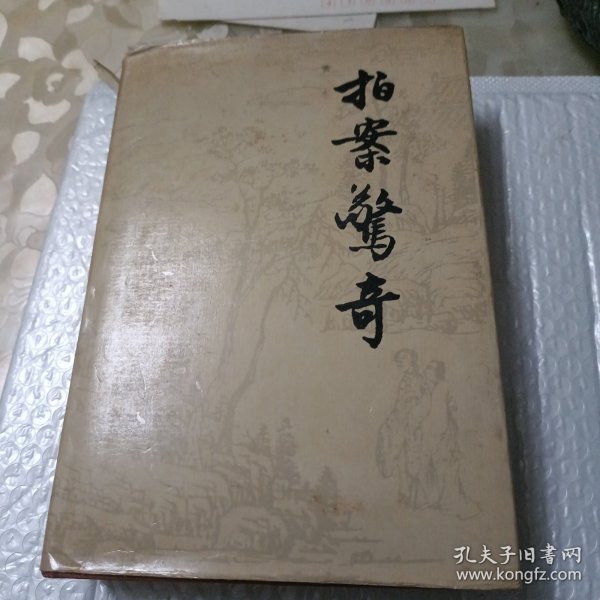 拍案驚奇
孔夫子旧書网
www.kongfz.com